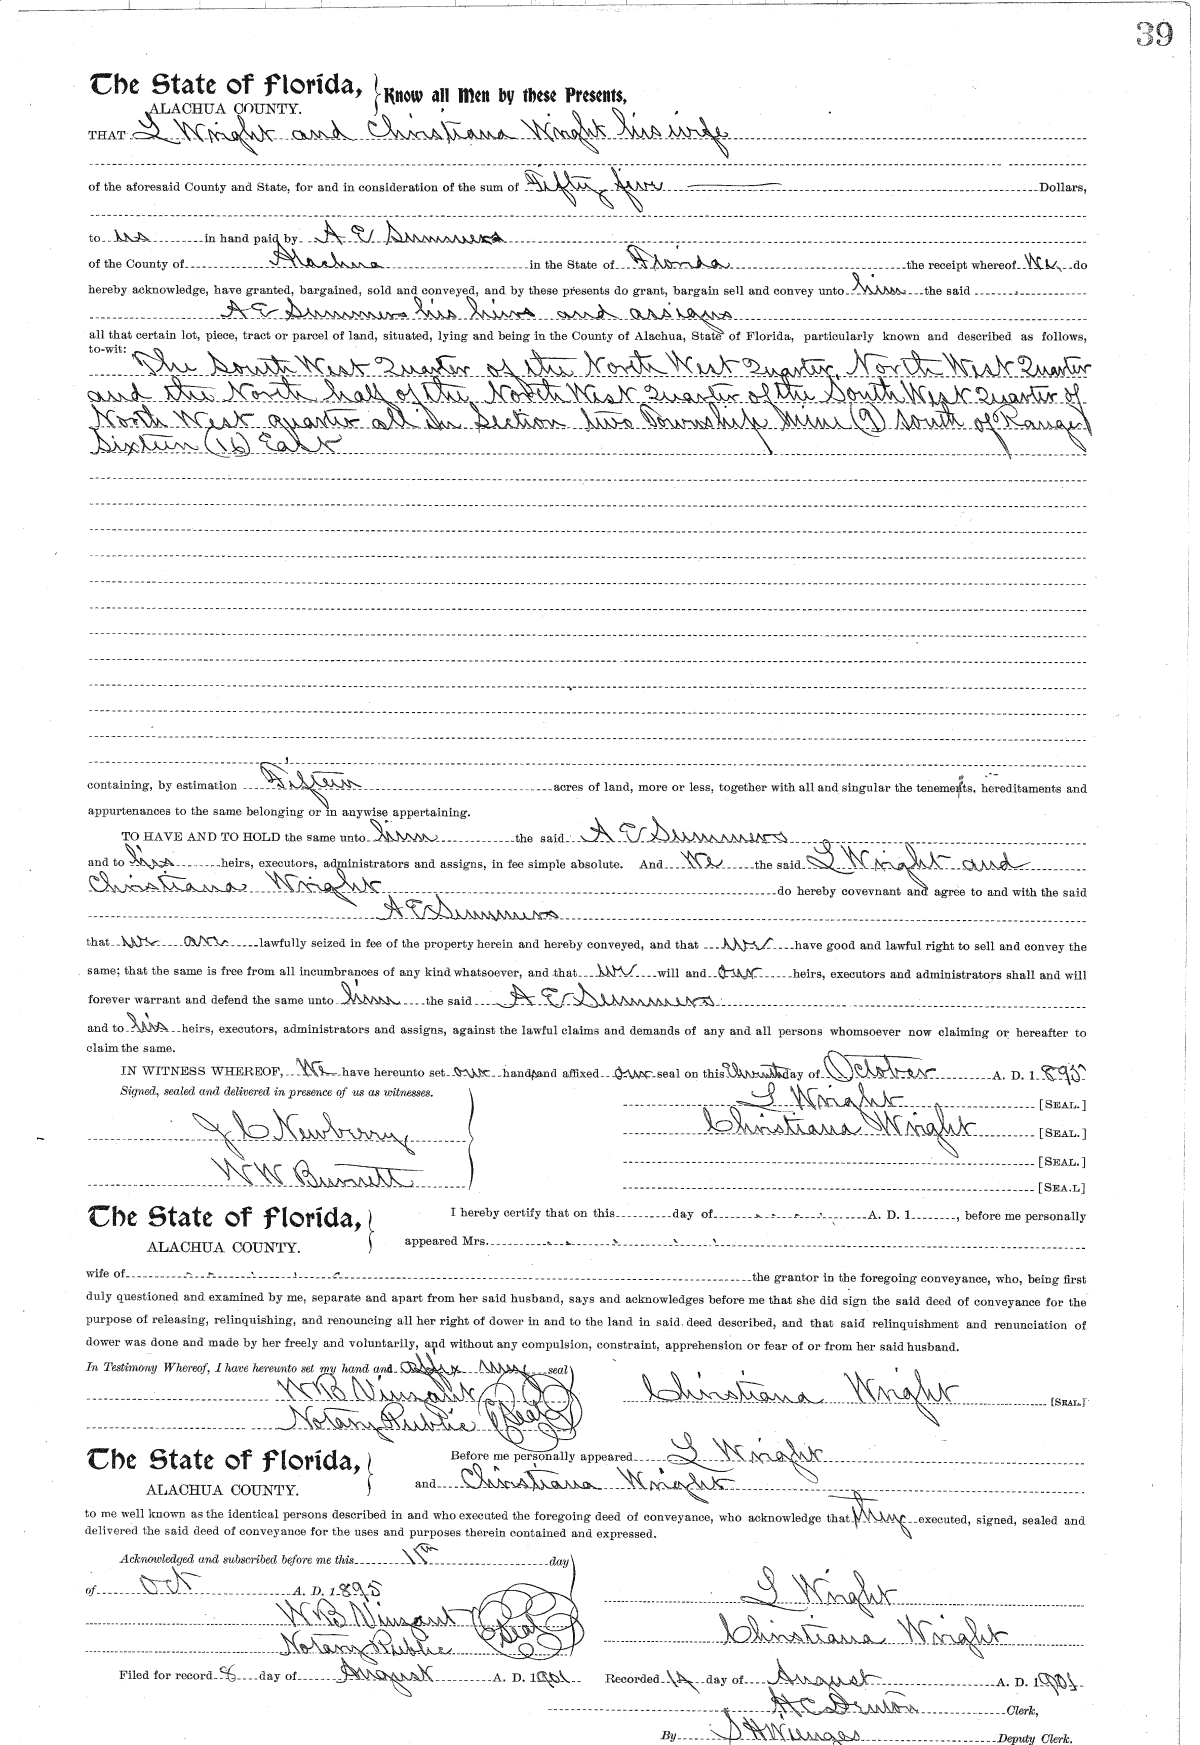 39
The State of Florida, Know all Men by these Presents,
ALACHUA COUNTY.
THAT L Wright and Christiana Wright his wife
of the aforesaid County and State, for and in consideration of the sum of Fifty five Dollars,
to us in hand paid by A E Summers
of the County of Alachua in the State of Florida the receipt whereof We do
hereby acknowledge, have granted, bargained, sold and conveyed, and by these presents do grant, bargain sell and convey unto him the said
A E Summers his heirs and assigns
all that certain lot, piece, tract or parcel of land, situated, lying and being in the County of Alachua, State of Florida, particularly known and described as follows,
to-wit: The South West Quarter of the North West Quarter, North West Quarter
and the North half of the North West Quarter of the South West Quarter of
North West quarter all in Section two Township Nine (9) South of Range
Sixteen (16) East
containing, by estimation Fifteen acres of land, more or less, together with all and singular the tenements, hereditaments and
appurtenances to the same belonging or in anywise appertaining.
TO HAVE AND TO HOLD the same unto him the said A E Summers
and to his heirs, executors, administrators and assigns, in fee simple absolute. And We the said L Wright and
Christiana Wright do hereby covevnant and agree to and with the said
A E Summers
that we are lawfully seized in fee of the property herein and hereby conveyed, and that we have good and lawful right to sell and convey the
same; that the same is free from all incumbrances of any kind whatsoever, and that we will and our heirs, executors and administrators shall and will
forever warrant and defend the same unto him the said A E Summers
and to his heirs, executors, administrators and assigns, against the lawful claims and demands of any and all persons whomsoever now claiming or hereafter to
claim the same.
IN WITNESS WHEREOF, We have hereunto set our hands and affixed our seal on this day of October A. D. 1895
Signed, sealed and delivered in presence of us as witnesses. L Wright [SEAL.]
J C Newberry Christiana Wright [SEAL.]
[SEAL.]
W W Burnett [SEA.L]
The State of Florida, I hereby certify that on this day of A. D. 1, before me personally
ALACHUA COUNTY. appeared Mrs.
wife of the grantor in the foregoing conveyance, who, being first
duly questioned and examined by me, separate and apart from her said husband, says and acknowledges before me that she did sign the said deed of conveyance for the
purpose of releasing, relinquishing, and renouncing all her right of dower in and to the land in said deed described, and that said relinquishment and renunciation of
dower was done and made by her freely and voluntarily, and without any compulsion, constraint, apprehension or fear of or from her said husband.
In Testimony Whereof, I have hereunto set my hand and affix my seal
W B Vinzant Christiana Wright [SEAL.]
Notary Public Seal
The State of Florida, Before me personally appeared L Wright
ALACHUA COUNTY. and Christiana Wright
to me well known as the identical persons described in and who executed the foregoing deed of conveyance, who acknowledge that they executed, signed, sealed and
delivered the said deed of conveyance for the uses and purposes therein contained and expressed.
Acknowledged and subscribed before me this day
of Oct A. D. 1895 L Wright
W B Vinzant Seal
Notary Public Christiana Wright
Filed for record 8 day of August A. D. 1901 Recorded day of August A. D. 1901
H C Denton Clerk,
By S H Wienges Deputy Clerk.